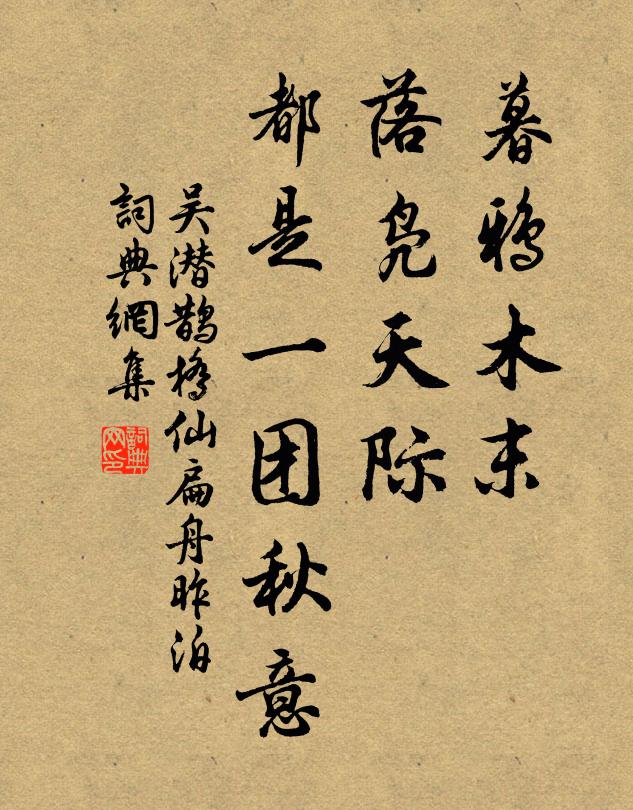 暮鴉木末
落凫天际
都是一团秋意
吴潜鹊橋仙扁舟昨泊
詞典網集
詞典网印